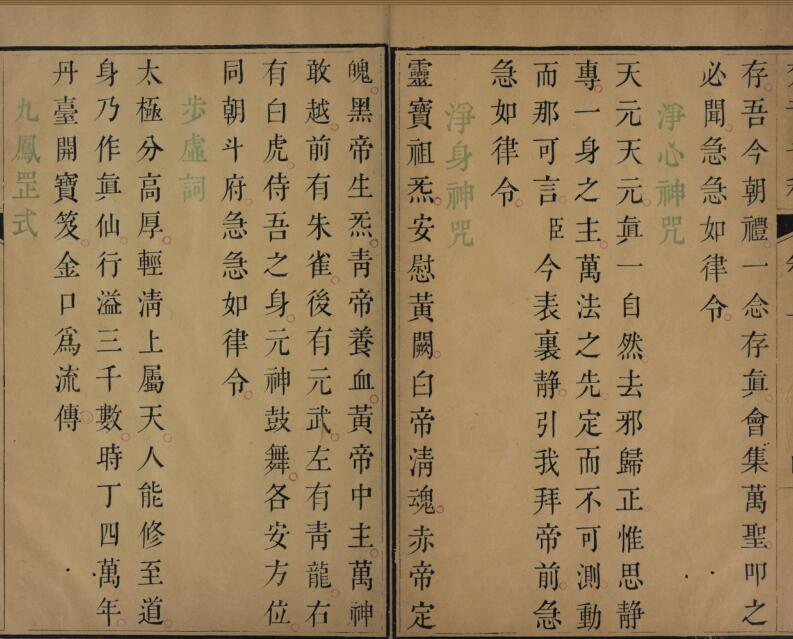 存吾今朝禮一念存眞會集萬聖叩之
必聞急急如律令
淨心神咒
天元天元眞一自然去邪歸正惟思靜
專一身之主萬法之先定而不可測動
而那可言臣今表裏靜引我拜帝前急
急如律令
淨身神咒
靈寶祖炁安慰黃闕白帝淸魂赤帝定
魄黑帝生炁靑帝養血黃帝中主萬神
敢越前有朱雀後有元武左有靑龍右
有白虎侍吾之身元神鼓舞各安方位
同朝斗府急急如律令
步虛詞
太極分高厚輕淸上屬天人能修至道
身乃作眞仙行溢三千數時丁四萬年
丹臺開寶笈金口爲流傳
九鳳罡式